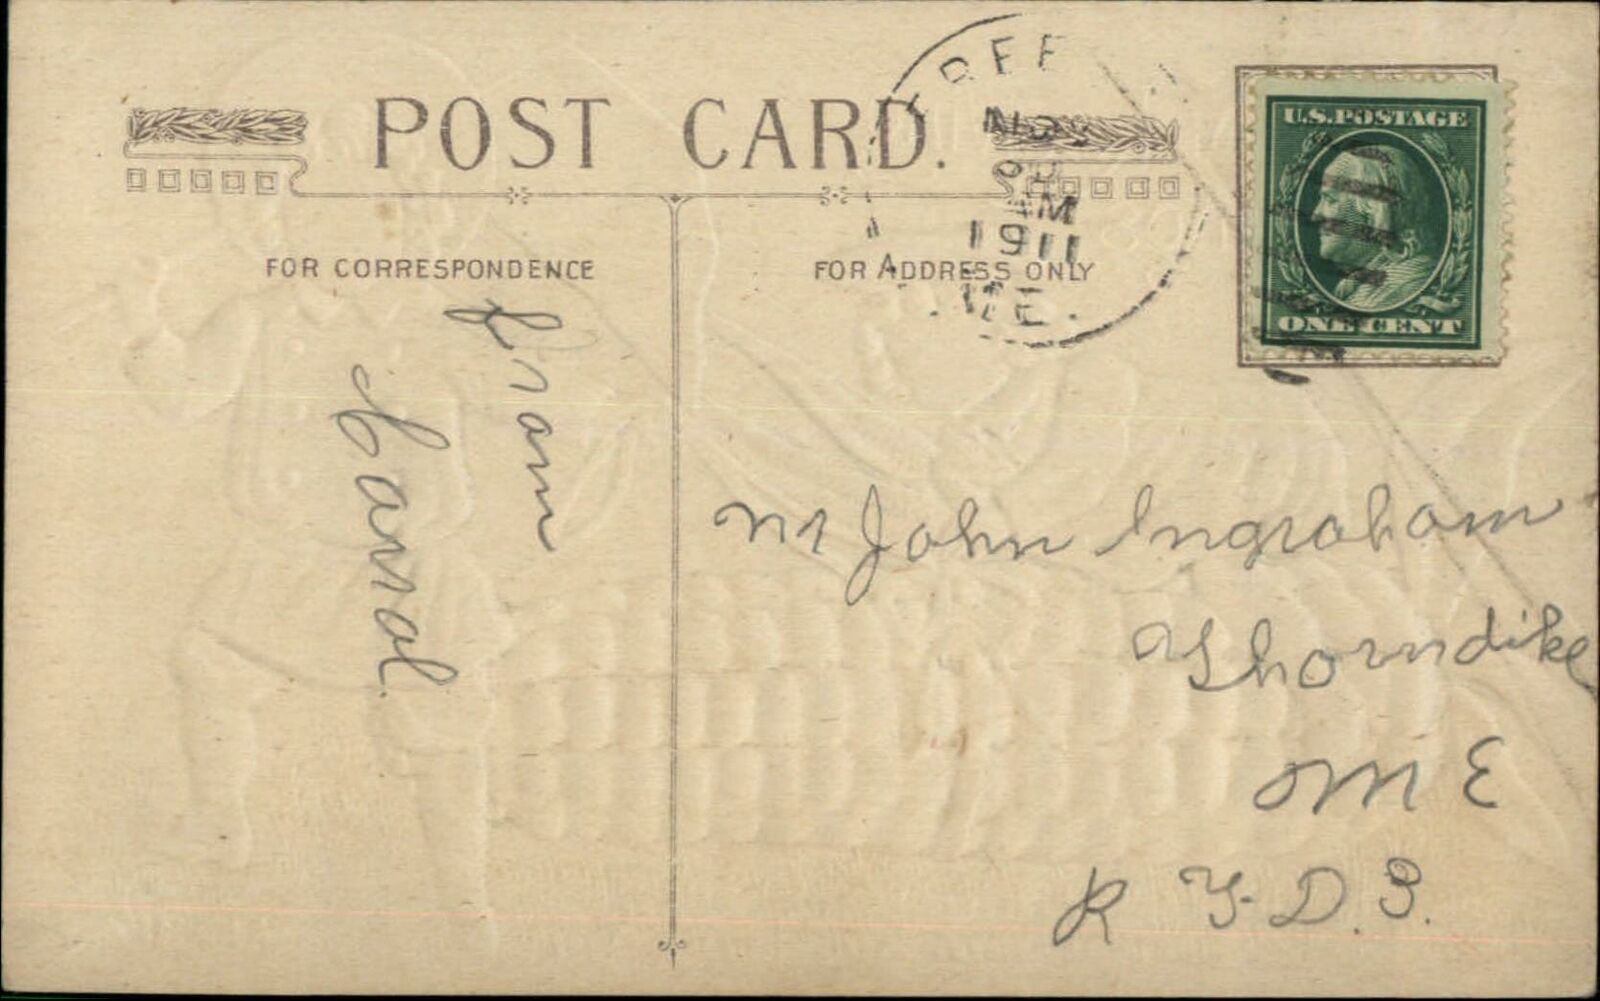 POST CARD.
FOR CORRESPONDENCE
FOR ADDRESS ONLY
NO
AM
1911
ME.
U.S. POSTAGE
ONE CENT
from
Carrol
Mr John Ingraham
Thorndike
ME
R F D. 3.